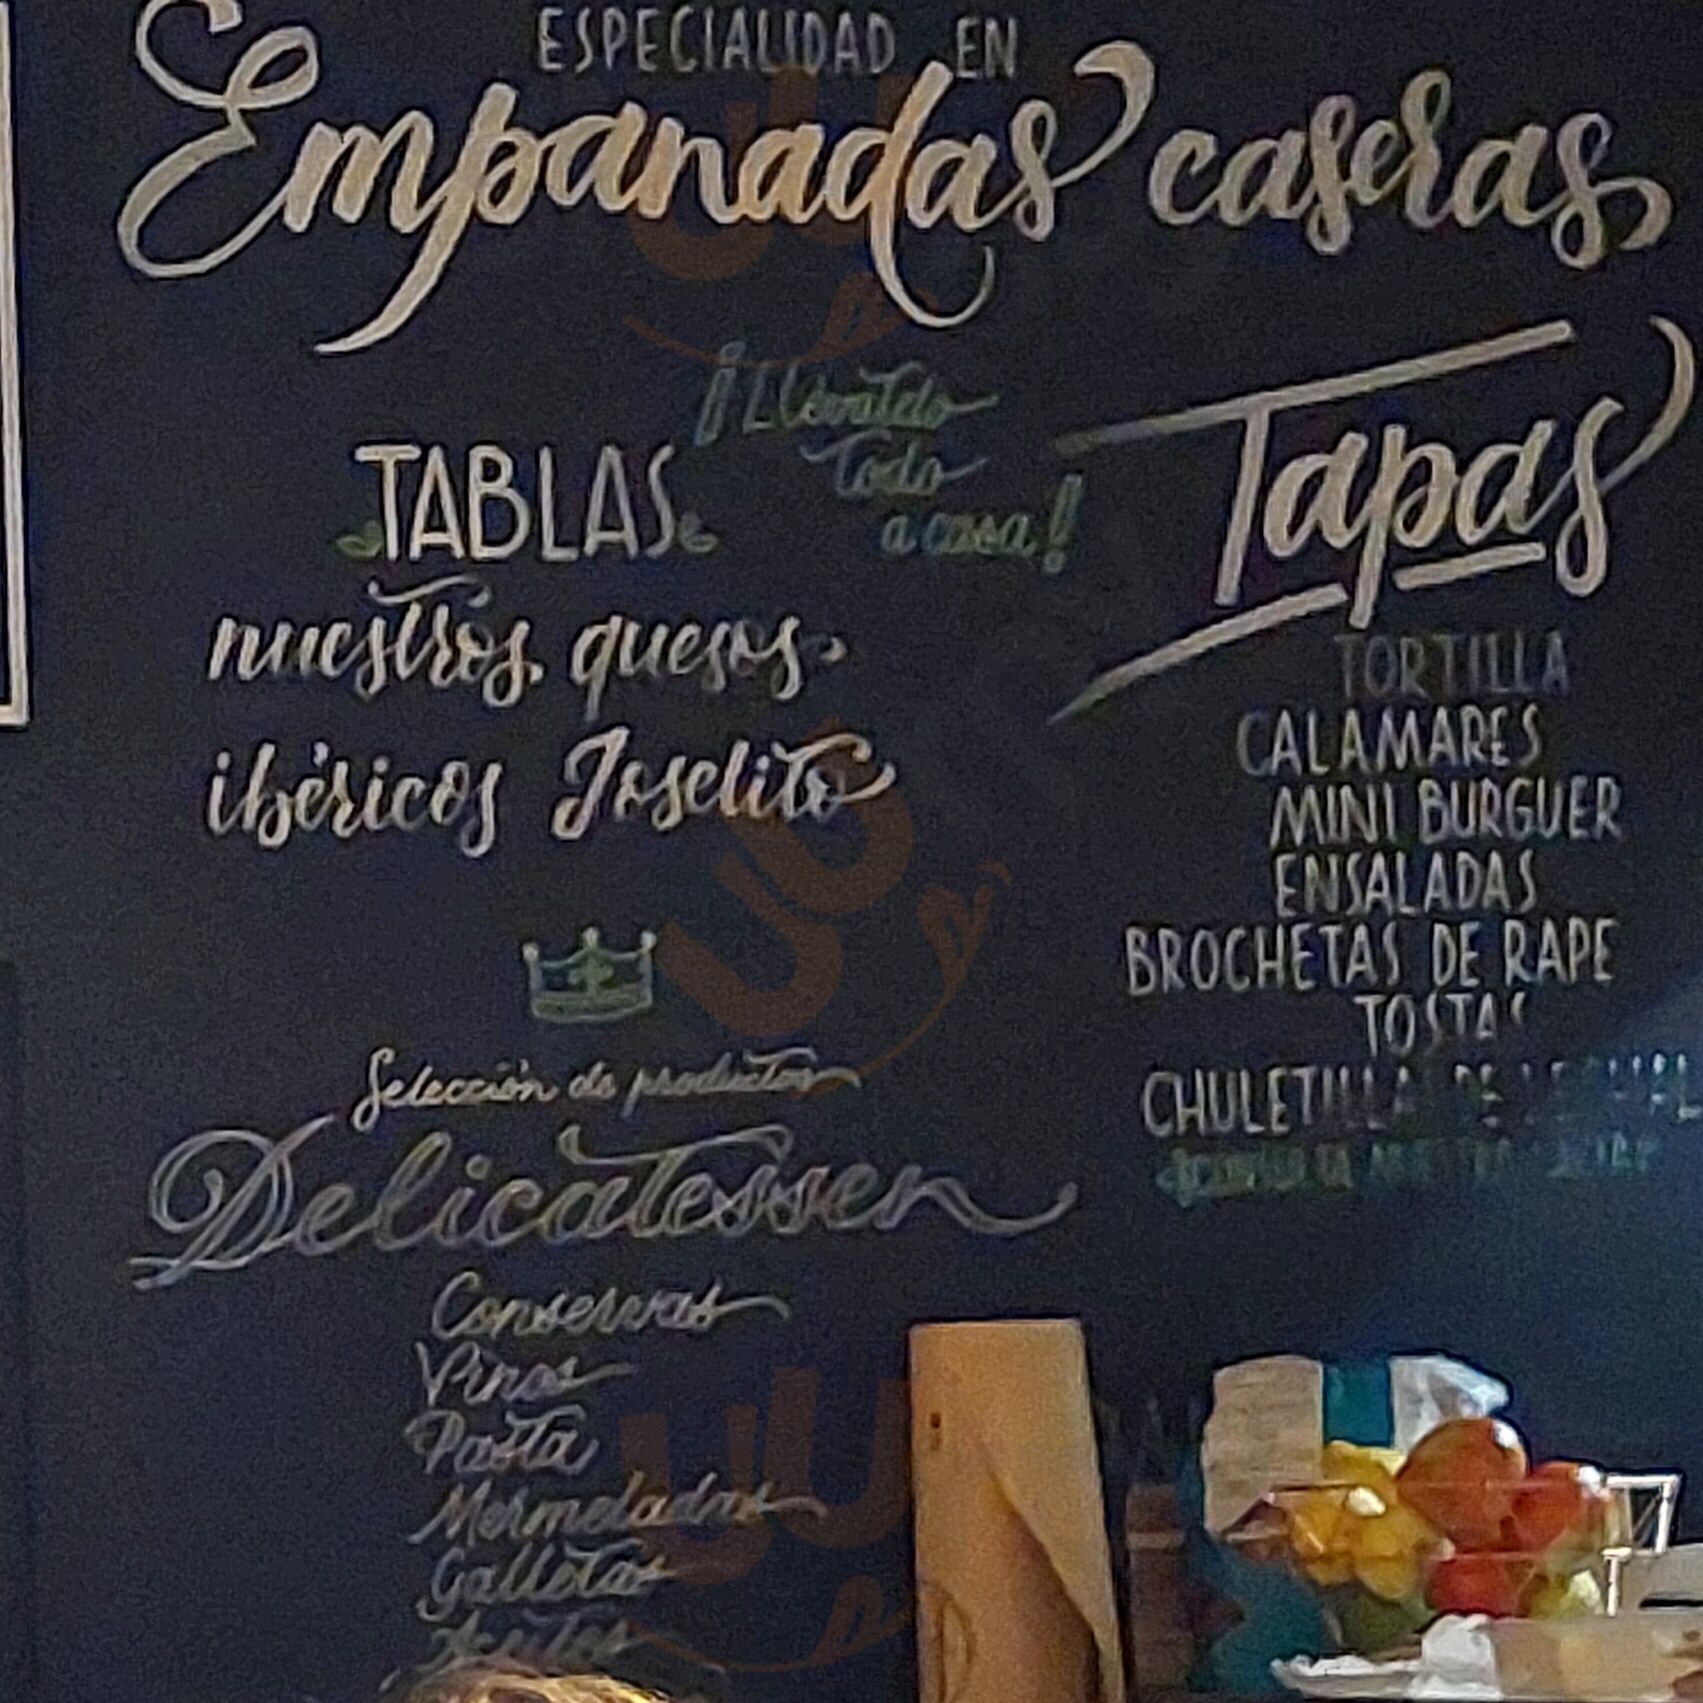 ESPECIALIDAD EN
Empanadas caseras
¡Llévatelo
todo
a casa!
TABLAS
nuestros quesos
ibéricos Joselito
Selección de productos
Delicatessen
Conservas
Vinos
Pasta
Mermeladas
Galletas
Aceites
Tapas
TORTILLA
CALAMARES
MINI BURGUER
ENSALADAS
BROCHETAS DE RAPE
TOSTAS
CHULETILLAS DE